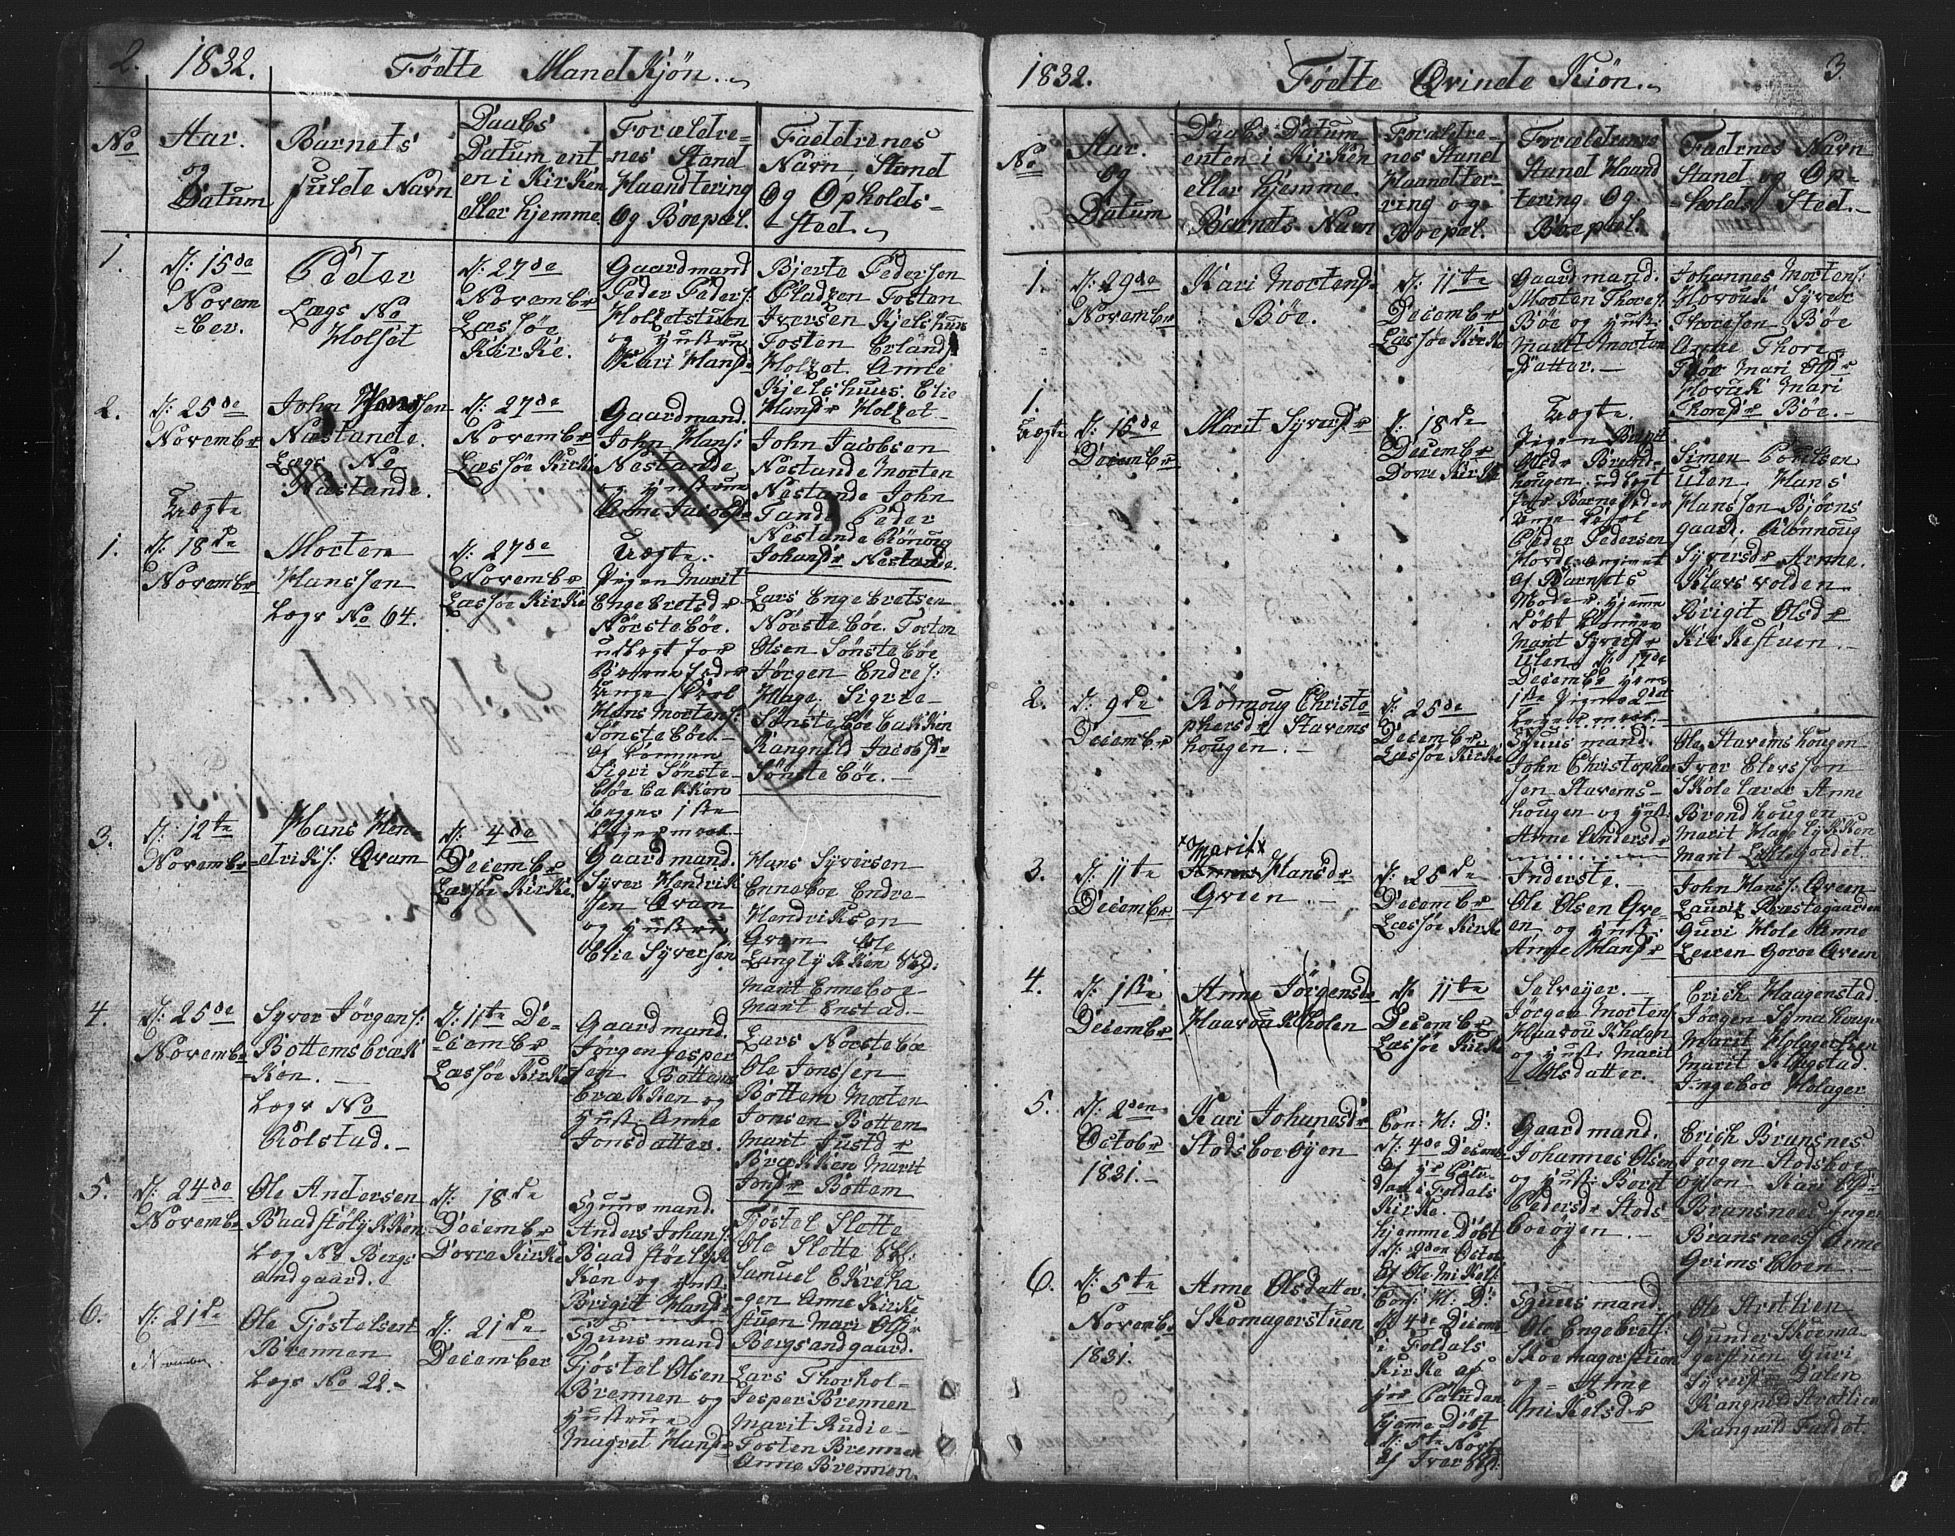 2. 1832. Fødte Mandkjøn.
No
Aar.
og
Datum
Barnets
fulde Navn
Daabs
Datum ent
en i Kirken
eller hjemme
Forældre-
nes Stand
Haandtering
Og Boepæl.
Faddrenes
Navn, Stand
Og Opholds-
sted.
1.
D: 15de
Novem
-ber.
Peder
Lægs No
Holset
D: 27de
Novembr
Læssøe
Kirke.
Gaardmand
Peder Peders:
Holsetstuen
og hustrue
Kari Hansd:
Bjerte Pederson
Pladsen Tosten
Iversen Kjelshuus
Tosten Erlands
Holset. Anne
Kjelshuus. Elie
Hansdr Holset
2.
D: 25de
Novembr
John Hanssen
Næstande.
Lægs No
Næstande.
D: 27de
Novembr
Læssøe Kirke
Gaardmand.
John Hans:
Nestande
og hustrue
Anne Jacobsdr
John Jacobsen
Nestande Morten
Nestande John
Tande Peder
Nestande Rønnoug
Johansdr Nestande.
Uægte
1.
D: 18de
Novembr
Morten
Hanssen
Lægs No 64.
D: 27de
Novembr
Læssøe Kirke
Uægte:
Pigen Marit
Engebretsdr
Nørsteboe.
udlagt for
Barnefader
Unge Karl
Hans Mortens:
Sønsteboe.
af Konnen
Sigri Sønste-
boe bakken
begges 1ste
Leyermaal
Lars Engebretsen
Nørsteboe. Tosten
Olsen Sønsteboe
Jørgen Endres:
Hage, Sigrie
Sønsteboebakken
Rangnild Jacobsdr
Sønsteboe.
3.
D: 12te
Novembr
Hans Hen-
driks: Qvam
D: 4de
Decembr
Læssøe Kirke
Gaardmand.
Syver Hendrik
sen Qvam
og hustrue
Elie Syversen
Hans Syversen
Enneboe Endre
Hendriksen
Qvam Ole
Langlykken
Marit Enneboe
Marit Enstad.
4.
D: 25de
Novembr
Syver Jørgens:
Bottemsbræk
-ken.
Lægs No
Rolstad.
D: 11te De-
-cembr
Læssøe Kirke
Gaardmand.
Jørgen Jesper
sen Bottems
brækken og
hust: Anne
Jonsdatter.
Lars Norsteboe
Ole Jonssen
Bottem Morten
Jonsen Bottem
Marit Justdr
Brækken Marit
Jonsdr Bottem
5.
D: 24de
Novembr
Ole Andersen
Baadstølykken
Læg No Bergs
andgaard.
D: 18de
Decembr
Dovre Kirke
Huusmand.
Anders Johans:
Baadstøelyk
ken og hust:
Brigit Hansdr
Tjøstel Slette
Ole Slette
Samuel Ekreha
-gen Anne Kirke
stuen Mari Olsdr
Bergsandgaard.
6.
D: 21de
November
Ole Tjøstelsen
Brennen
Lægs No 22.
D: 21de
December
Huusmand
Tjøstel Olsen
Brennen og
hustrue
Magret Hansdr
Lars Thorhol-
Jesper Brennen
Marit Rudie
Tosten Brennen
Anne Brennen.
1832. Fødte Qvinde Kiøn. 3.
No
Aar.
Og
Datum
Daabs Datum
enten i Kirken
eller hjemme
Barnets Navn
Forældre-
nes Stand
Haandter-
ring og
Boepæl.
Forældrenes
Stand Haand
tering Og
Boepæl.
Fadrenes Navn
Stand og Op-
holds Sted.
1.
D: 29de
Novembr
Kari Mortensdr
Bøe.
D: 11te
Decembr
Læssøe Kirke
Gaardmand.
Morten Thores:
Bøe og hust:
Marit Morten
Datter.
Johannes Mortens:
Horouk Syver
Thoresen Bøe
Anne Thore-
Bøe Mari Olsdr
Horouk Mari
Thoresdr Bøe.
1.
Uægte
D: 15de
Decembr
Marit Syversdr
D: 18de
Decembr
Dovre Kirke
Uægte.
Pigen Berit
Olsdr Brend-
hougen udlagt
for Barnefader
Peder Pedersen
af Barnets
Moder. Hjemme
Døbt
Marit Syversdr
Ulen. D: 17de
Decembr hans
1ste Pigens 2det
Leyermaal.
Simen Poulsen
Ulen Hans
Hanssen Bjørns
gaard. Rønnoug
Syversdr Arnne.
Klevsvolden
Brigit Olsdr
Kirkestuen.
2.
D: 9de
Decembr
Rønnoug Christo
phersdr Stavems
hougen.
D: 25de
Decembr
Læssøe Kirke
Huusmand.
John Christopher
sen Stavems-
hougen og hust:
Anne Andersdr
Ole Stavemshougen
Iver Elerssøn
Skolelærer Anne
Brandhougen
Marit Hagelykken
Marit Lillegordet.
3.
D: 11te
Decembr
Marit
Hansdr
Qveen
D: 25de
Decembr
Læssøe Kirke
Inderste.
Ole Olsen Qve-
en og hust:
Anne Hansdr
John Hans: Qveen
Laurit Præstegaarden
Guri Hole Anne
Leeen Goroe Qveen
4.
D: 1ste
Decembr
Anne Jørgensdr
Haaroukholen
D: 11te
Decembr
Læssøe Kirke
Selveyer.
Jørgen Mortens
Haaroukholen
og hust: Marit
Olsdatter.
Erich Haagenstad.
Jørgen
Marit Holagerlien
Marit Klugstad.
Ingebor Holager
5.
D: 2den
Octobr
1831.
Kari Johansdr
Stodsboeøyen
Con: H: D:
D: 4de Decemb
af hr
i Foldals
Kirke.
hjemme Døbt
D: 2den Octob
af Ole Mikels:
Gaardmand.
Johannes Olsen
og hust: Berit
Pedersdr Stods
boeøyen.
Erich Bransnes
Jørgen Stodsboe
øyen Kari Olsdr
Bransnees Inger
Bransnees Anne
Grims Moen
6.
D: 5te
Novembr
1831.
Anne Olsdatter
Skomagerstuen
Con: H: D:
D: 4de Decemb
i Foldals
Kirke af
hjeme Døbt
D: 5te Novb
af Iver
Huusmand.
Ole Engebrets:
Skoemagerstuen
og Anne
Mikelsdr
Ole Strølien
Gunder Skoema
gerstuen Guri
Syversdr Dalen
Rangnild Strølien
Rangnild Faldet.